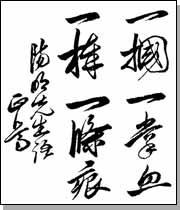 一摑一掌血
一棒一條痕
陽明先生語